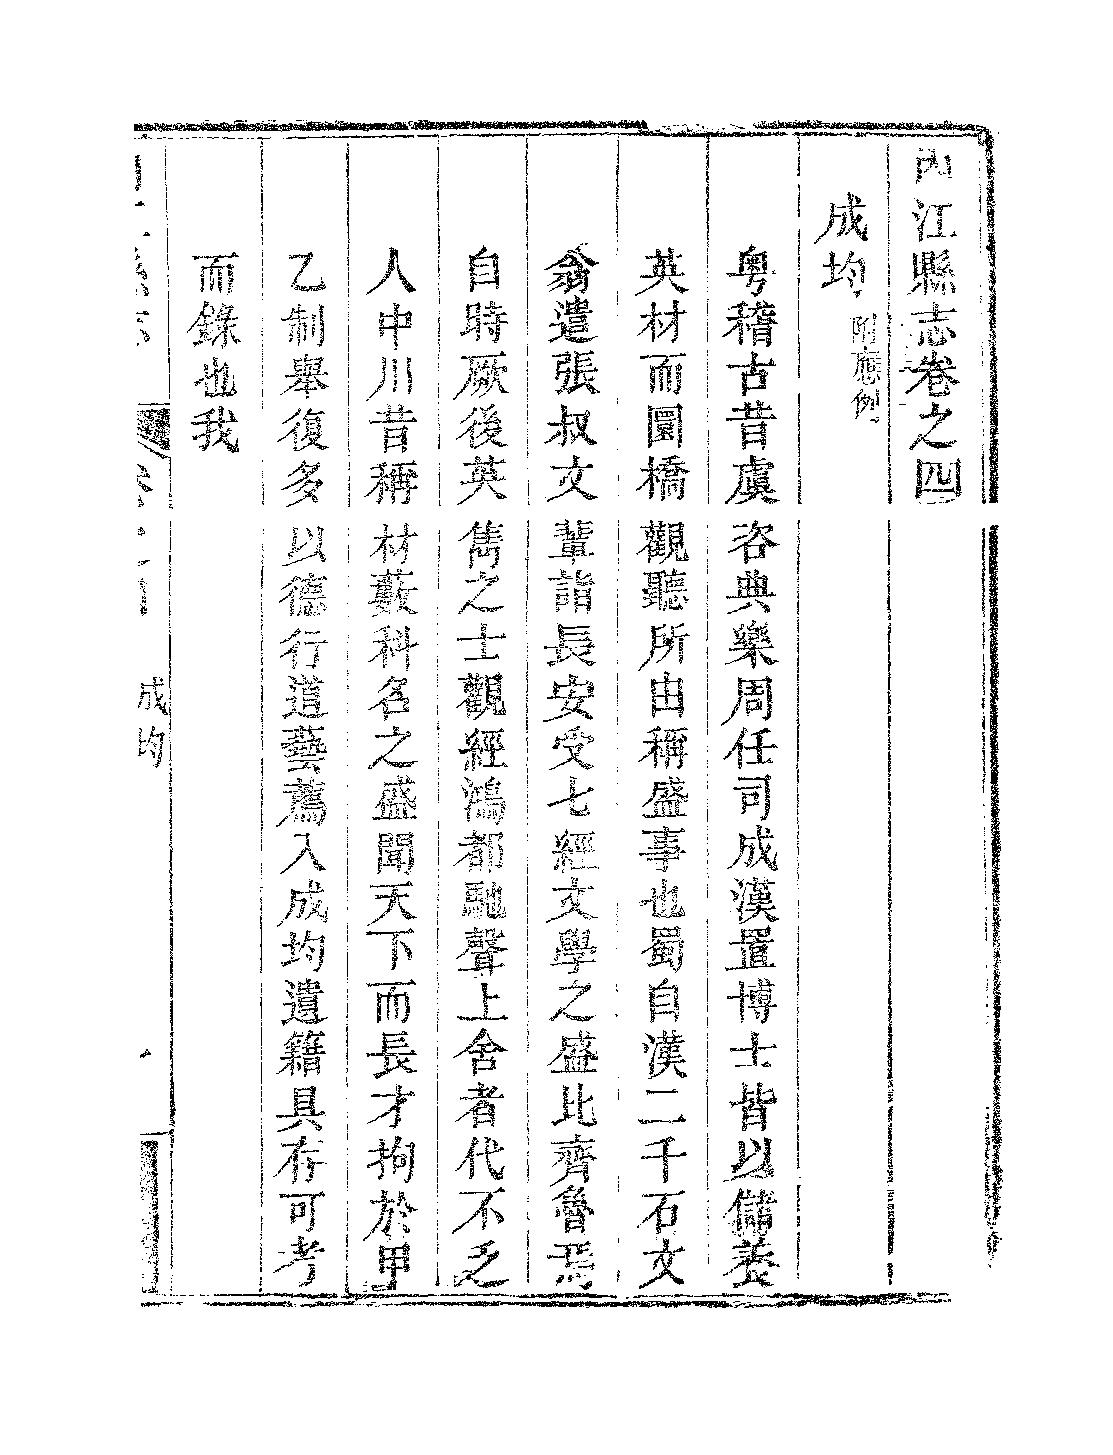 內江縣志卷之四
成均 附應例
粤稽古昔虞咨典樂周任司成漢置博士皆以儲養
英材而圜橋觀聽所由稱盛事也蜀自漢二千石文
翁遣張叔文輩詣長安受七經文學之盛比齊魯焉
自時厥後英雋之士觀經鴻都馳聲上舍者代不乏
人中川昔稱材藪科名之盛聞天下而長才拘於甲
乙制舉復多以德行道藝薦入成均遺籍具存可考
而錄也我
成均